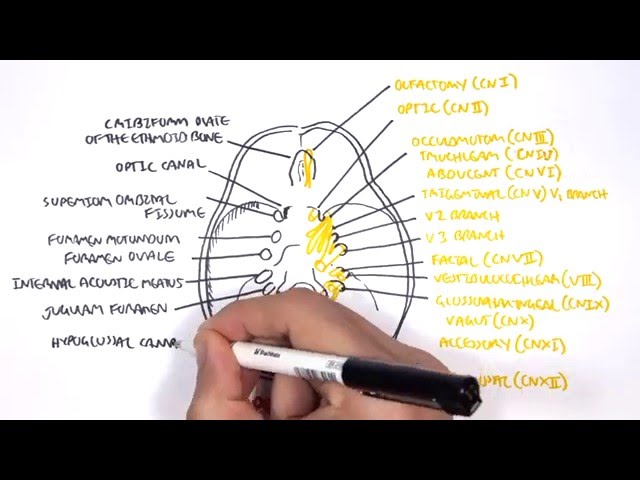 OLFACTORY (CN I)
OPTIC (CN II)
CRIBIFORM PLATE
OF THE ETHMOID BONE
OPTIC CANAL
SUPERIOR ORBITAL
FISSURE
FORAMEN ROTUNDUM
FORAMEN OVALE
INTERNAL ACOUSTIC MEATUS
JUGULAR FORAMEN
HYPOGLOSSAL CANA
OCCULOMOTOR (CN III)
TROCHLEAR (CN IV)
ABDUCENT (CN VI)
TRIGEMINAL (CN V) V1 BRANCH
V2 BRANCH
V3 BRANCH
FACIAL (CN VII)
VESTIBULOCOCHLEAR (VIII)
GLOSSOPHARYNGEAL (CN IX)
VAGUS (CN X)
ACCESSORY (CN XI)
SSAL (CN XII)